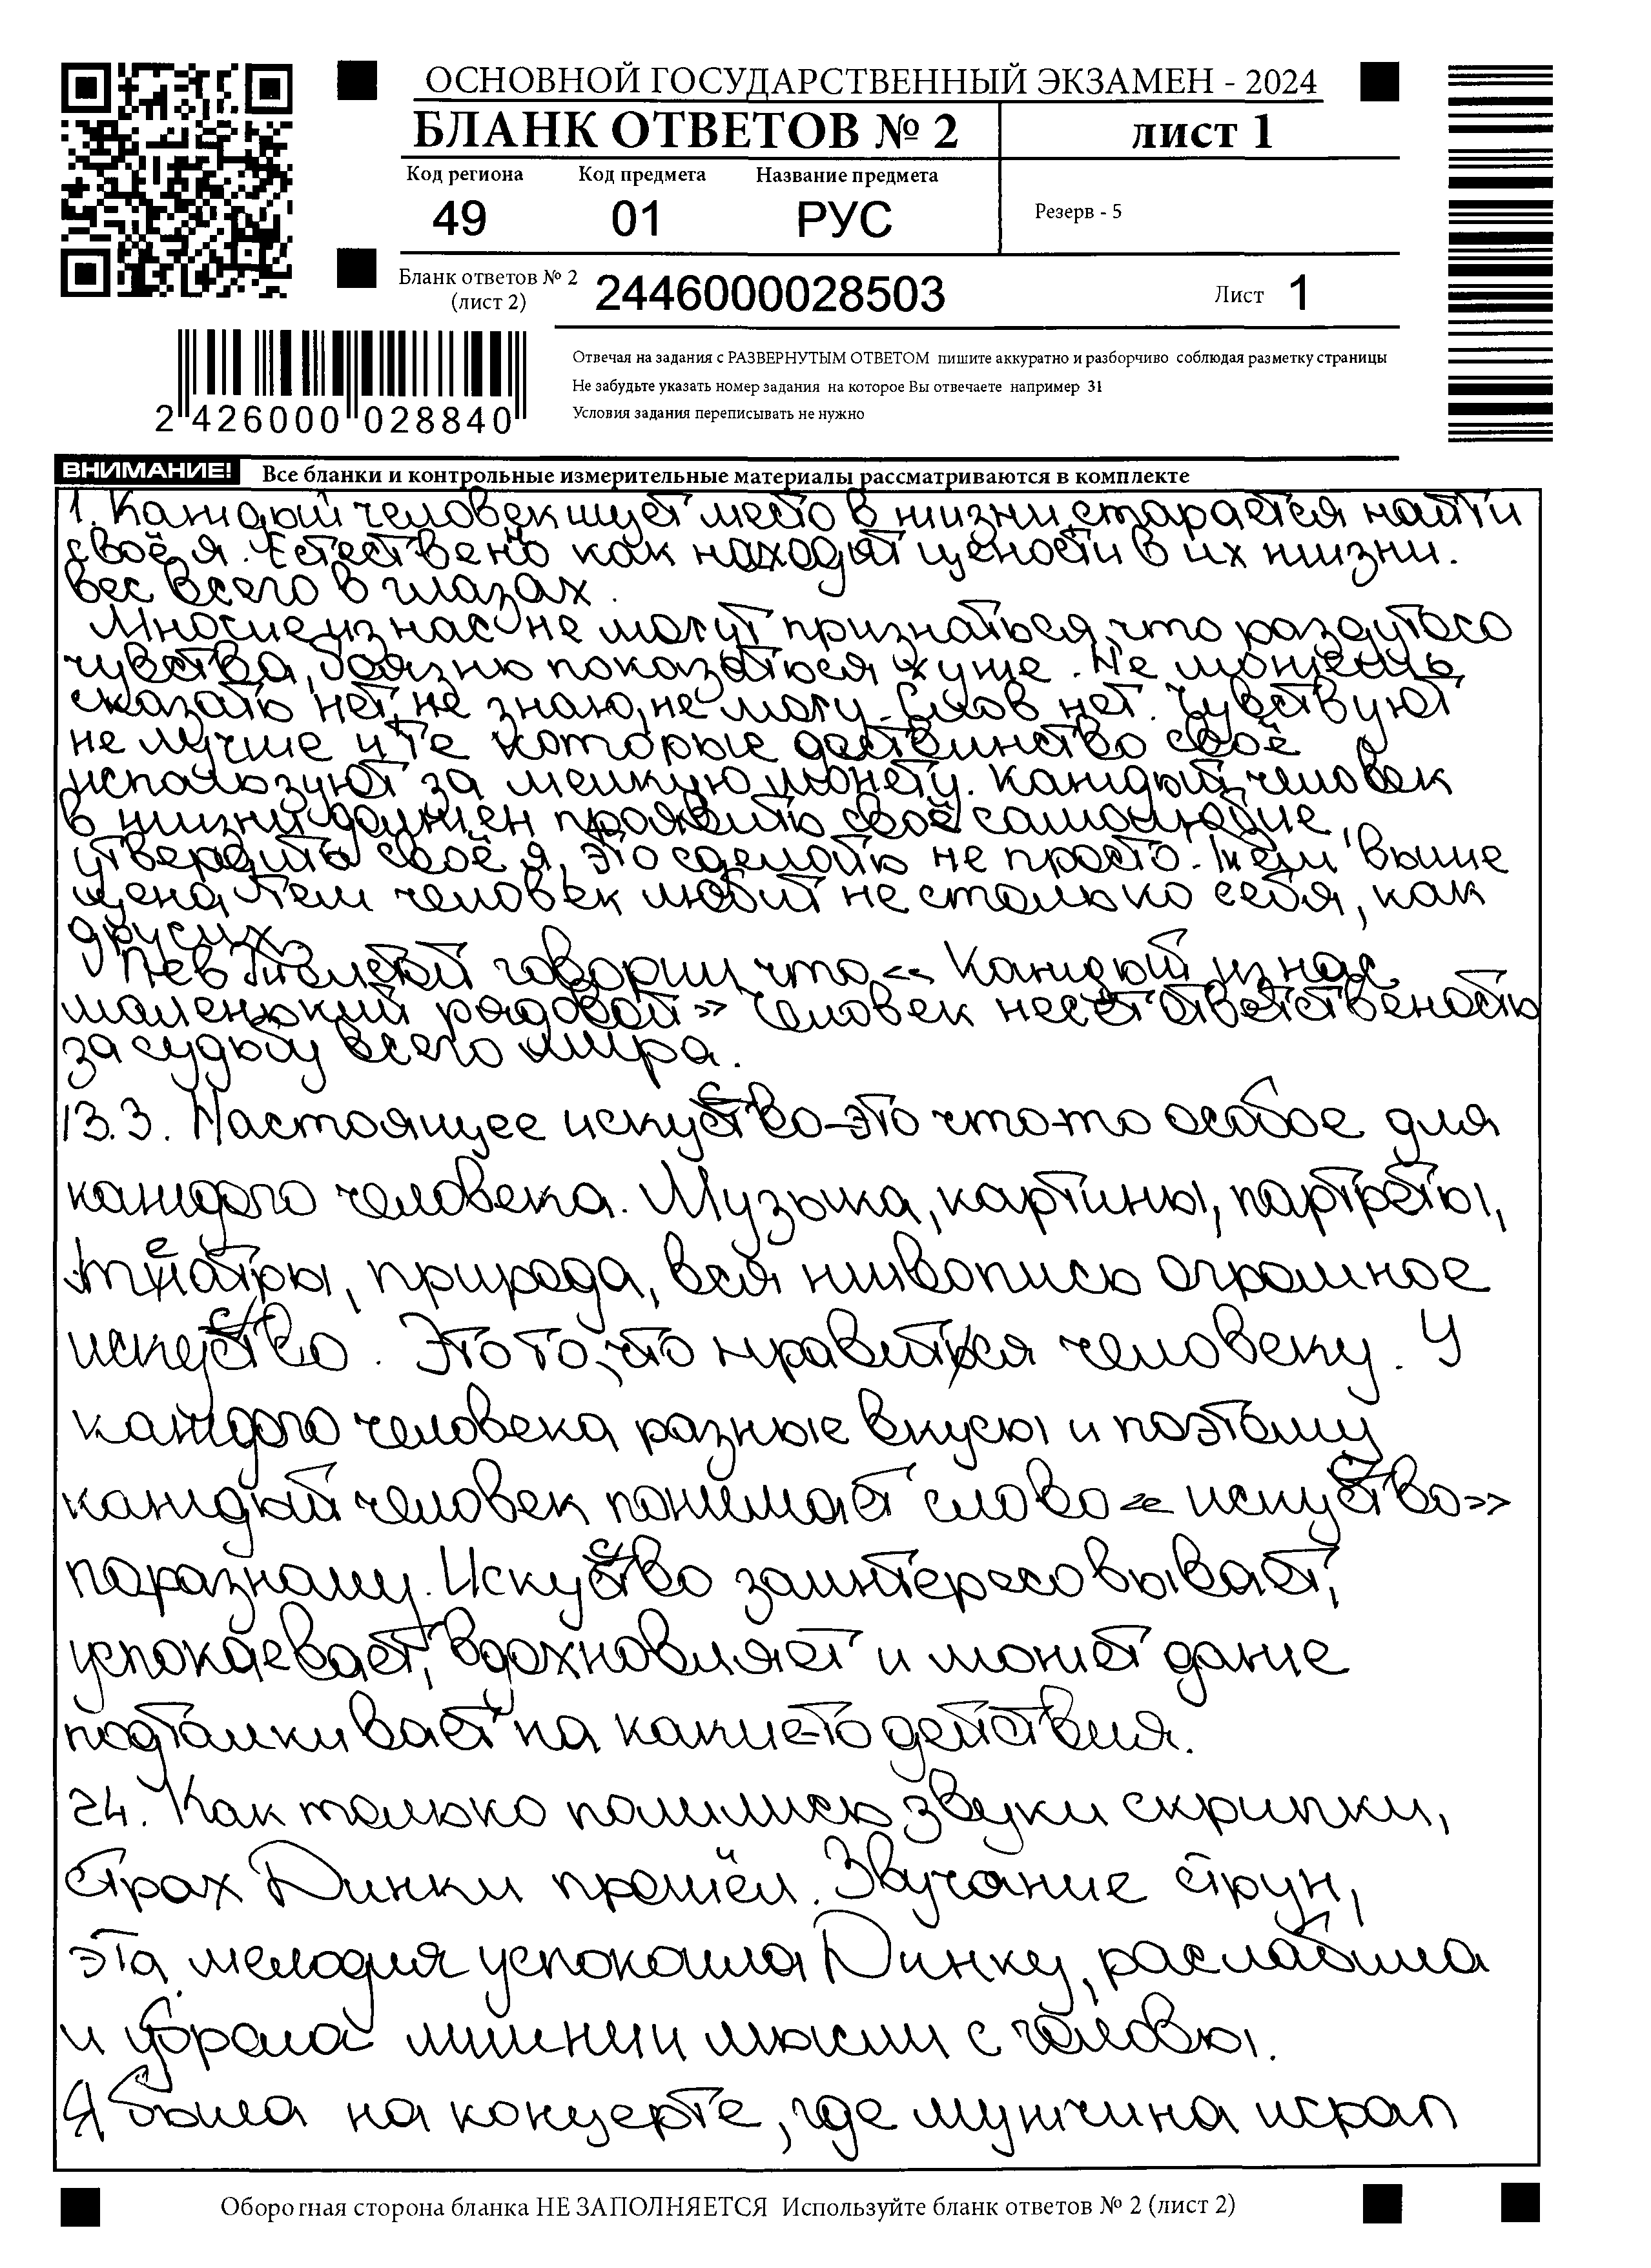 ОСНОВНОЙ ГОСУДАРСТВЕННЫЙ ЭКЗАМЕН - 2024
БЛАНК ОТВЕТОВ № 2 лист 1
Код региона Код предмета Название предмета
49 01 РУС Резерв - 5
Бланк ответов № 2 (лист 2) 2446000028503 Лист 1
Отвечая на задания с РАЗВЕРНУТЫМ ОТВЕТОМ пишите аккуратно и разборчиво соблюдая разметку страницы
Не забудьте указать номер задания на которое Вы отвечаете например 31
Условия задания переписывать не нужно
2 426000 028840
ВНИМАНИЕ! Все бланки и контрольные измерительные материалы рассматриваются в комплекте
1. Каждый человек ищет место в жизни, старается найти
своё я. Естествено как находят цености в их жизни.
вес всего в глазах.
Многие из нас не могут признаться, что раздутого
чувства, боязнь показаться хуже. Не можешь
сказать нет, не знаю, не могу. Слов нет. Чувствуют
не лучше и те которые достоинство своё
используют за мелкую монету. Каждый человек
в жизни должен проявить своё самолюбие,
утвердить своё я, это сделать не просто. Чем выше
цена, тем человек любит не столько себя, как
других.
Лев Толстой говорил, что << Каждый из нас
маленький рядовой >> Человек несёт ответственость
за судьбу всего мира.
13.3. Настоящее искуство-это что-то особое для
каждого человека. Музыка, картины, партреты,
театры, природа, вся живопись огромное
искуство. Это то, что нравится человеку. У
каждого человека разные вкусы и поэтому
каждый человек понимает слово << искуство >>
поразному. Искуство заинтересовывает,
успокаевает, вдохновляет и может даже
подталкивает на какие-то действия.
24. Как только полились звуки скрипки,
страх Динки прошёл. Звучание струн,
эта мелодия успокоила Динку, раслабила
и убрала лишнии мысли с головы.
Я была на концерте, где мужчина играл
Оборотная сторона бланка НЕ ЗАПОЛНЯЕТСЯ Используйте бланк ответов № 2 (лист 2)